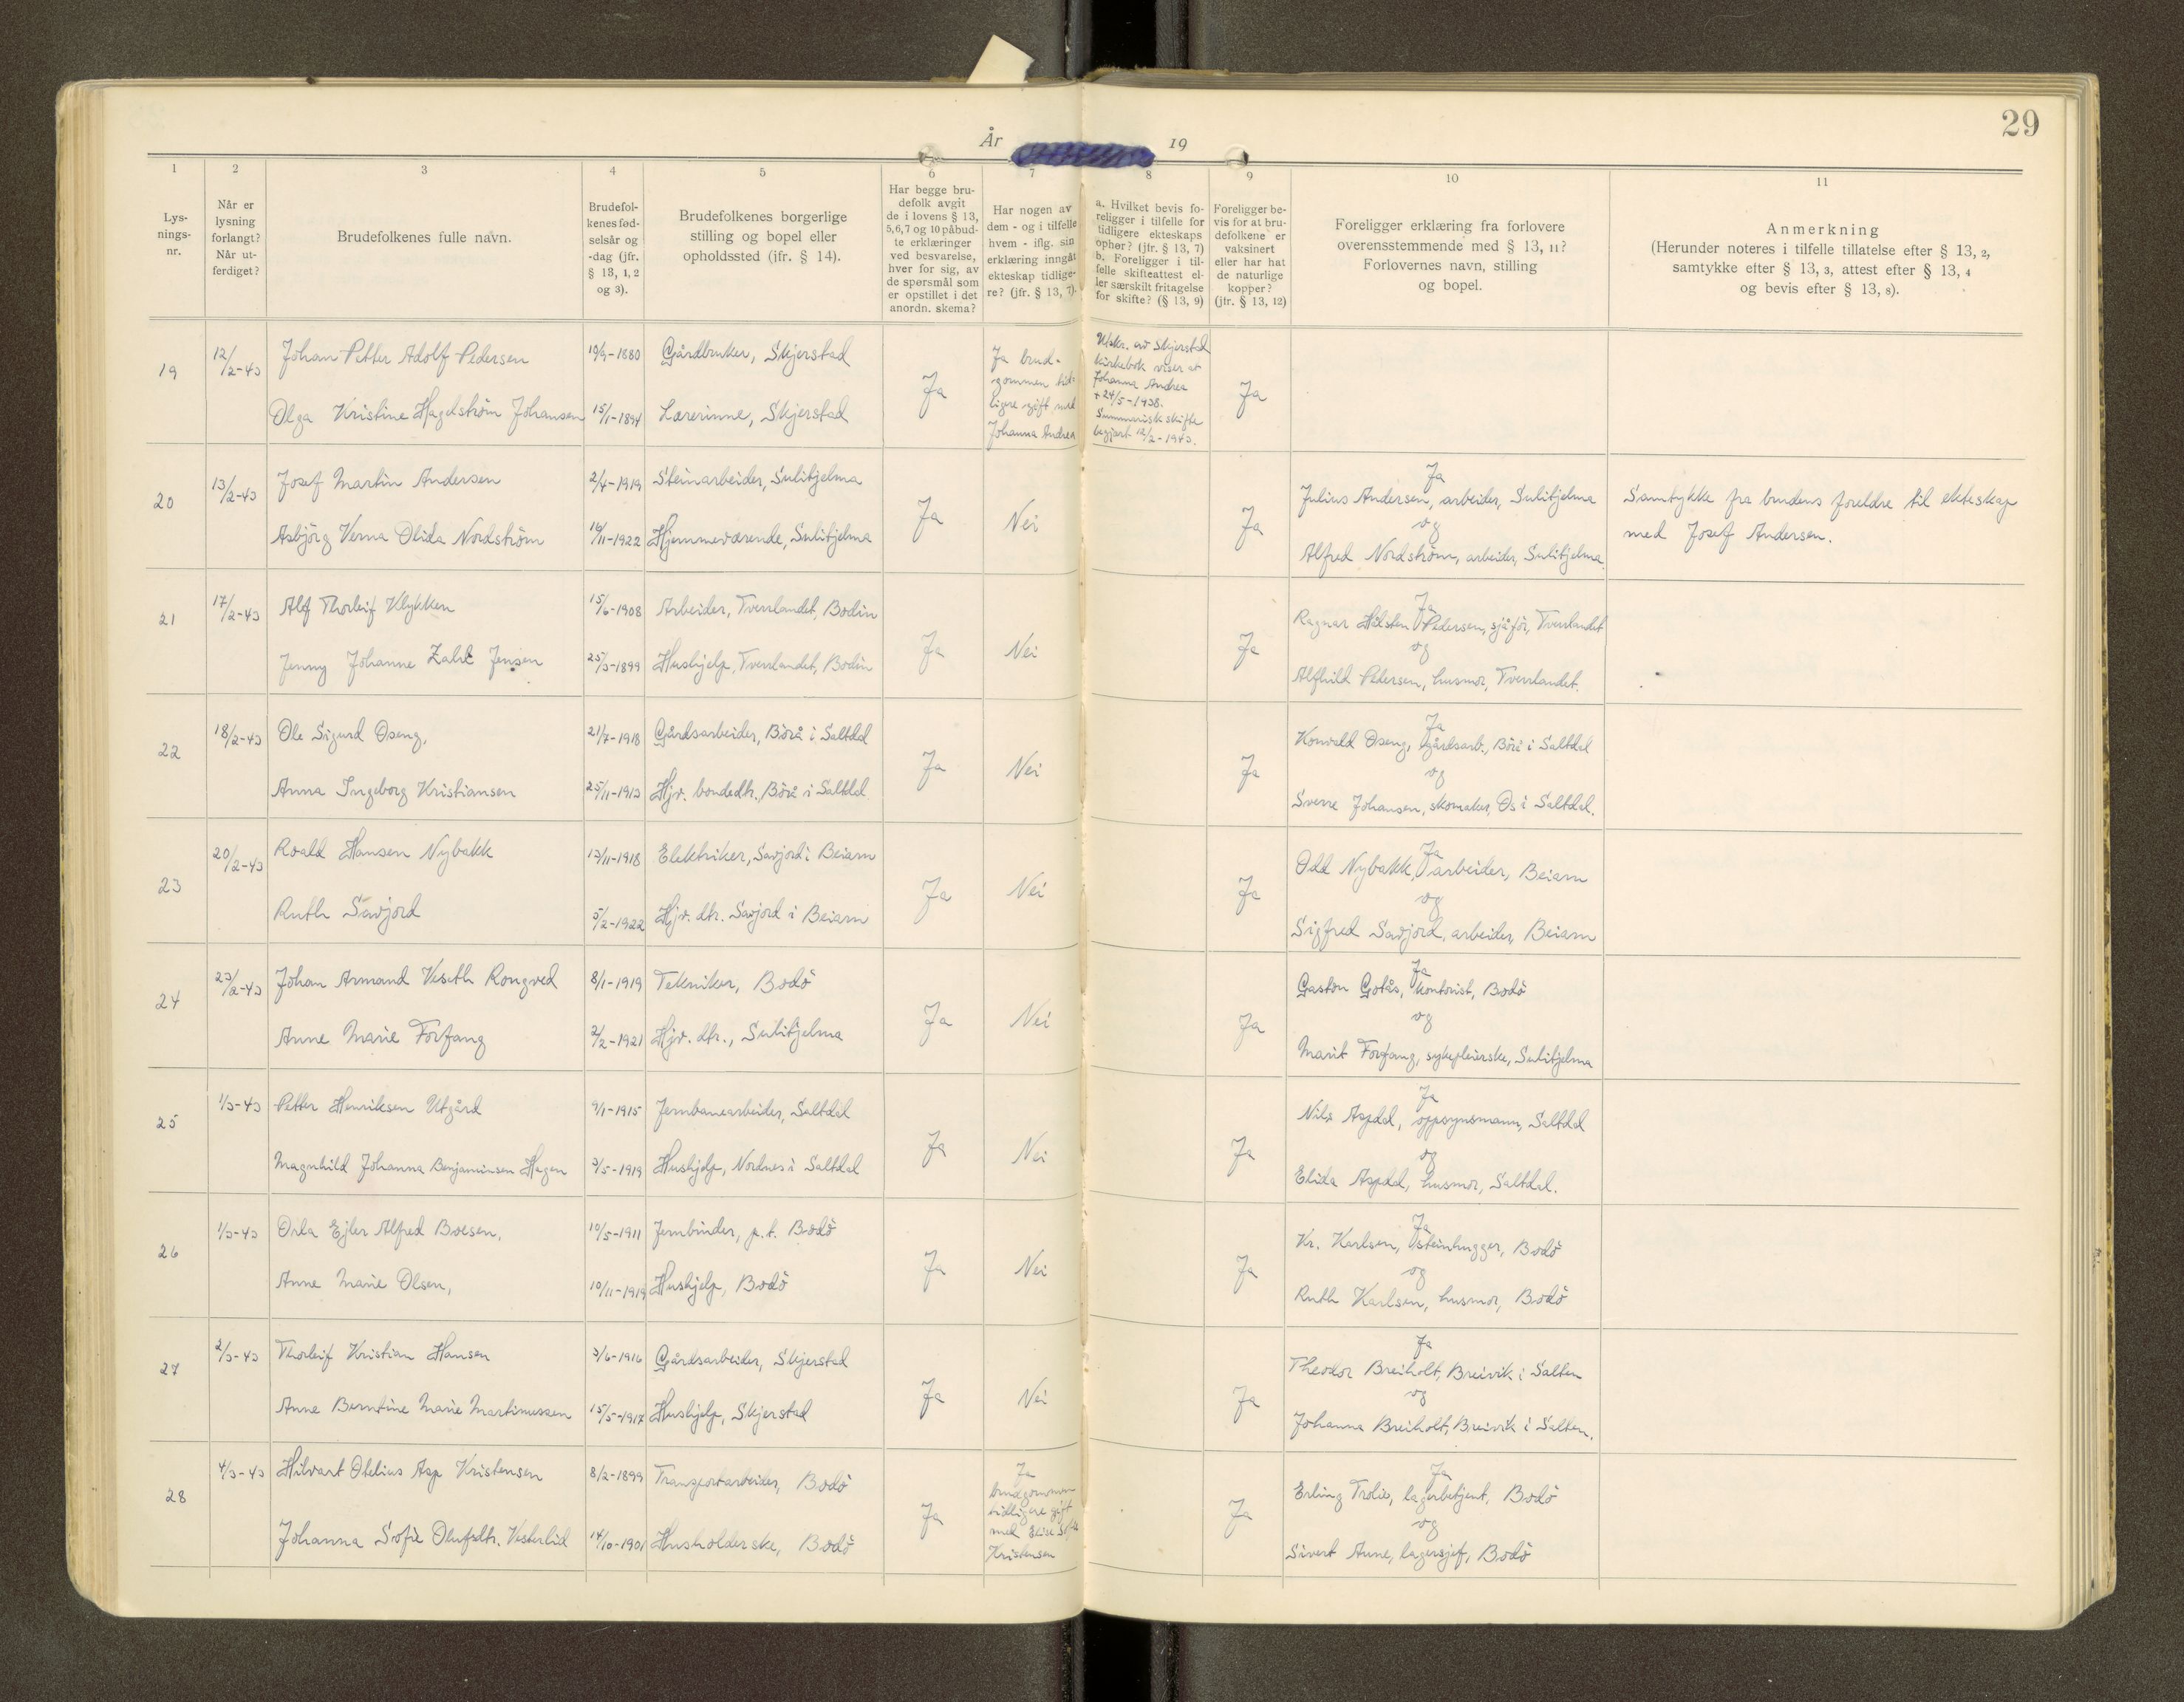 29
År 19
1
2
3
4
5
6
7
8
9
10
11
Lys-
nings-
nr.
Når er
lysning
forlangt?
Når ut-
ferdiget?
Brudefolkenes fulle navn.
Brudefol-
kenes fød-
selsår og
-dag (jfr.
§ 13, 1, 2
og 3).
Brudefolkenes borgerlige
stilling og bopel eller
opholdssted (ifr. § 14).
Har begge bru-
defolk avgit
de i lovens § 13,
5,6,7 og 10 påbud-
te erklæringer
ved besvarelse,
hver for sig, av
de spørsmål som
er opstillet i det
anordn. skema?
Har nogen av
dem - og i tilfelle
hvem - iflg. sin
erklæring inngåt
ekteskap tidlige-
re? (jfr. § 13, 7).
a. Hvilket bevis fo-
religger i tilfelle for
tidligere ekteskaps
ophør? (jfr. § 13, 7)
b. Foreligger i til-
felle skifteattest el-
ler særskilt fritagelse
for skifte? (§ 13, 9)
Foreligger be-
vis for at bru-
defolkene er
vaksinert
eller har hat
de naturlige
kopper?
(jfr. § 13, 12)
Foreligger erklæring fra forlovere
overensstemmende med § 13, 11?
Forlovernes navn, stilling
og bopel.
Anmerkning
(Herunder noteres i tilfelle tillatelse efter § 13, 2,
samtykke efter § 13, 3, attest efter § 13, 4
og bevis efter § 13, 8).
19
12/2-43
Johan Petter Adolf Pedersen
19/9-1880
Gårdbruker, Skjerstad
Olga Kristine Hagelström Johansen
15/1-1894
Lærerinne, Skjerstad
Ja
Ja brud-
gommen tid-
ligere gift med
Johanna Andrea
Utskr. av Skjerstad
kirkebok viser at
Johanna Andrea
+ 24/5-1938.
Summarisk skifte
begjært 12/2-1943.
Ja
20
13/2-43
Josef Martin Andersen
2/4-1919
Steinarbeider, Sulitjelma
Asbjörg Verna Olida Nordström
16/11-1922
Hjemmeværende, Sulitjelma
Ja
Nei
Ja
Ja
Julius Andersen, arbeider, Sulitjelma
og
Alfred Nordström, arbeider, Sulitjelma.
Samtykke fra brudens foreldre til ekteskap
med Josef Andersen.
21
17/2-43
Alf Thorleif Klykken
15/6-1908
Arbeider, Tverrlandet, Bodin
Jenny Johanne Zahl Jensen
25/3-1899
Hushjelp, Tverrlandet, Bodin
Ja
Nei
Ja
Ja
Ragnar Hålsten Pedersen, sjåför, Tverrlandet
og
Alfhild Pedersen, husmor, Tverrlandet.
22
18/2-43
Ole Sigurd Oseng,
21/7-1918
Gårdsarbeider, Börå i Saltdal
Anna Ingeborg Kristiansen
25/11-1913
Hjv. bondedtr., Börå i Saltdal
Ja
Nei
Ja
Ja
Konvald Oseng, gårdsarb., Börå i Saltdal
og
Sverre Johansen, skomaker, Os i Saltdal.
23
20/2-43
Roald Hansen Nybakk
13/11-1918
Elektriker, Savjord i Beiarn
Ruth Savjord
5/2-1922
Hjv. dtr. Savjord i Beiarn
Ja
Nei
Ja
Ja
Odd Nybakk, arbeider, Beiarn
og
Sigfred Savjord, arbeider, Beiarn
24
23/2-43
Johan Armand Veseth Rongved
8/1-1919
Tekniker, Bodö
Anne Marie Forfang
2/2-1921
Hjv. dtr., Sulitjelma
Ja
Nei
Ja
Ja
Gaston Gotås, kontorist, Bodö
og
Marit Forfang, sykepleierske, Sulitjelma
25
1/3-43
Petter Henriksen Utgård
9/1-1915
Jernbanearbeider, Saltdal
Magnhild Johanna Benjaminsen Hagen
3/5-1919
Hushjelp, Nordnes i Saltdal
Ja
Nei
Ja
Ja
Nils Aspdal, oppsynsmann, Saltdal
og
Elida Aspdal, husmor, Saltdal.
26
1/3-43
Orla Ejler Alfred Boesen,
10/5-1911
Jernbinder, p.t. Bodö
Anne Marie Olsen,
10/11-1919
Hushjelp, Bodö
Ja
Nei
Ja
Ja
Kr. Karlsen, steinhugger, Bodö
og
Ruth Karlsen, husmor, Bodö
27
2/3-43
Thorleif Kristian Hansen
3/6-1916
Gårdsarbeider, Skjerstad
Anne Berntine Marie Martinussen
15/5-1917
Hushjelp, Skjerstad
Ja
Nei
Ja
Ja
Theodor Breiholt, Breivik i Salten
og
Johanna Breiholt, Breivik i Salten.
28
4/3-43
Hilvart Otelius Asp Kristensen
8/2-1899
Transportarbeider, Bodö
Johanna Sofie Olufsdtr. Vesterlid
14/10-1901
Husholderske, Bodö
Ja
Ja
brudgommen
tidligere gift
med Elise Sofie
Kristensen
Ja
Ja
Erling Trolid, lagerbetjent, Bodö
og
Sivert Aune, lagersjef, Bodö